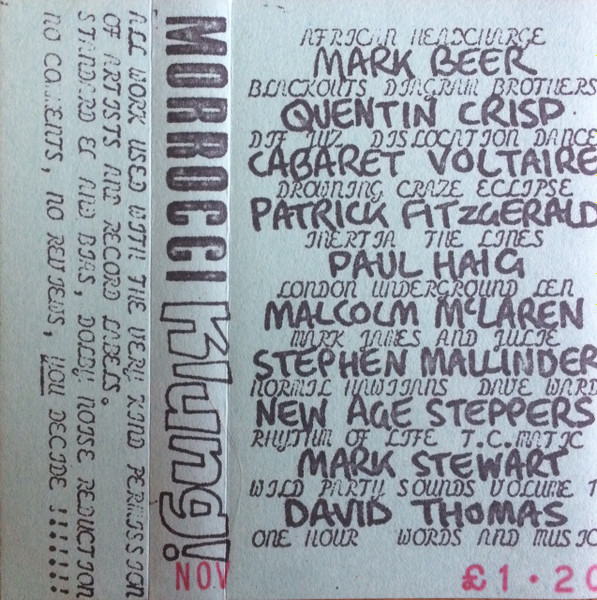 AFRICAN HEADCHARGE
MARK BEER
BLACKOUTS DIAGRAM BROTHERS
QUENTIN CRISP
DIF JUZ DISLOCATION DANCE
CABARET VOLTAIRE
DROWNING CRAZE ECLIPSE
PATRICK FITZGERALD
INERTIA THE LINES
PAUL HAIG
LONDON UNDERGROUND LEN
MALCOLM McLAREN
MARK JAMES AND JULIE
STEPHEN MALLINDER
NORMIL HAWIIANS DAVE WARD
NEW AGE STEPPERS
RHYTHM OF LIFE T.C.MATIC
MARK STEWART
WILD PARTY SOUNDS VOLUME 1
DAVID THOMAS
ONE HOUR WORDS AND MUSIC
£1·20
MORROCCI Klung!
NOV
ALL WORK USED WITH THE VERY KIND PERMISSION
OF ARTISTS AND RECORD LABELS.
STANDARD EQ AND BIAS, DOLBY NOISE REDUCTION
NO COMMENTS, NO REVIEWS, YOU DECIDE !!!!!!!